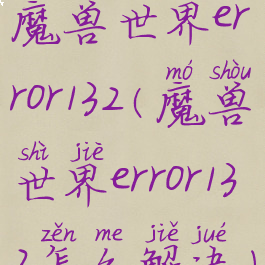 魔兽世界er
ror132(魔兽
mó shòu
世界error13
shì jiè
2怎么解决)
zěn me jiě jué